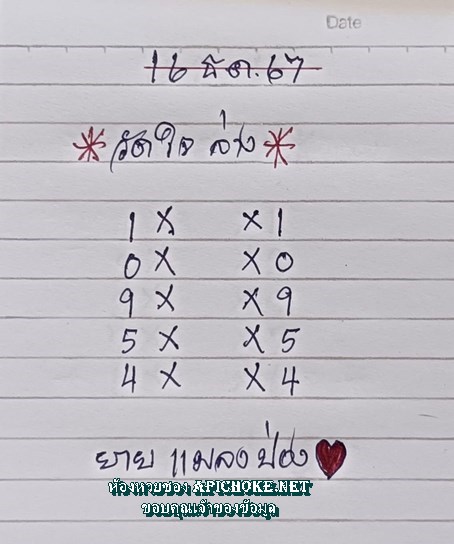 Date
16 ธ.ค. 67
* วัดใจ ล่าง *
1 X X 1
0 X X 0
9 X X 9
5 X X 5
4 X X 4
ยาย แมลงป่อง
ห้องหวยซอง APICHOKE.NET
ขอบคุณเจ้าของข้อมูล